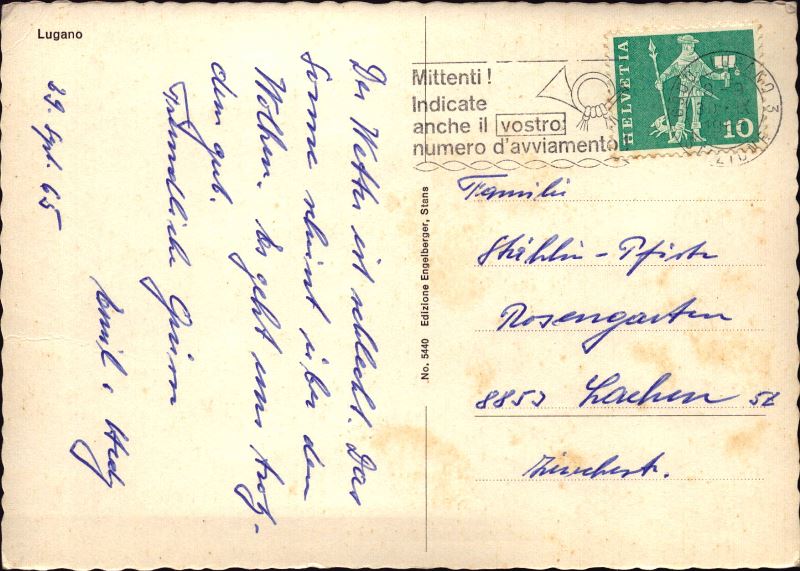 Lugano
29. Spt. 65
Das Wetter ist schlecht. Das
Sonne scheint über den
Wolken. Es geht uns trotz-
dem gut.
Freundliche Grüsse
Emil &
No. 5440 Edizione Engelberger, Stans
Mittenti!
Indicate
anche il vostro
numero d'avviamento
HELVETIA
10
Familie
Stählin-Pfister
Rosengarten
8853 Lachen SZ
Zürcherstr.